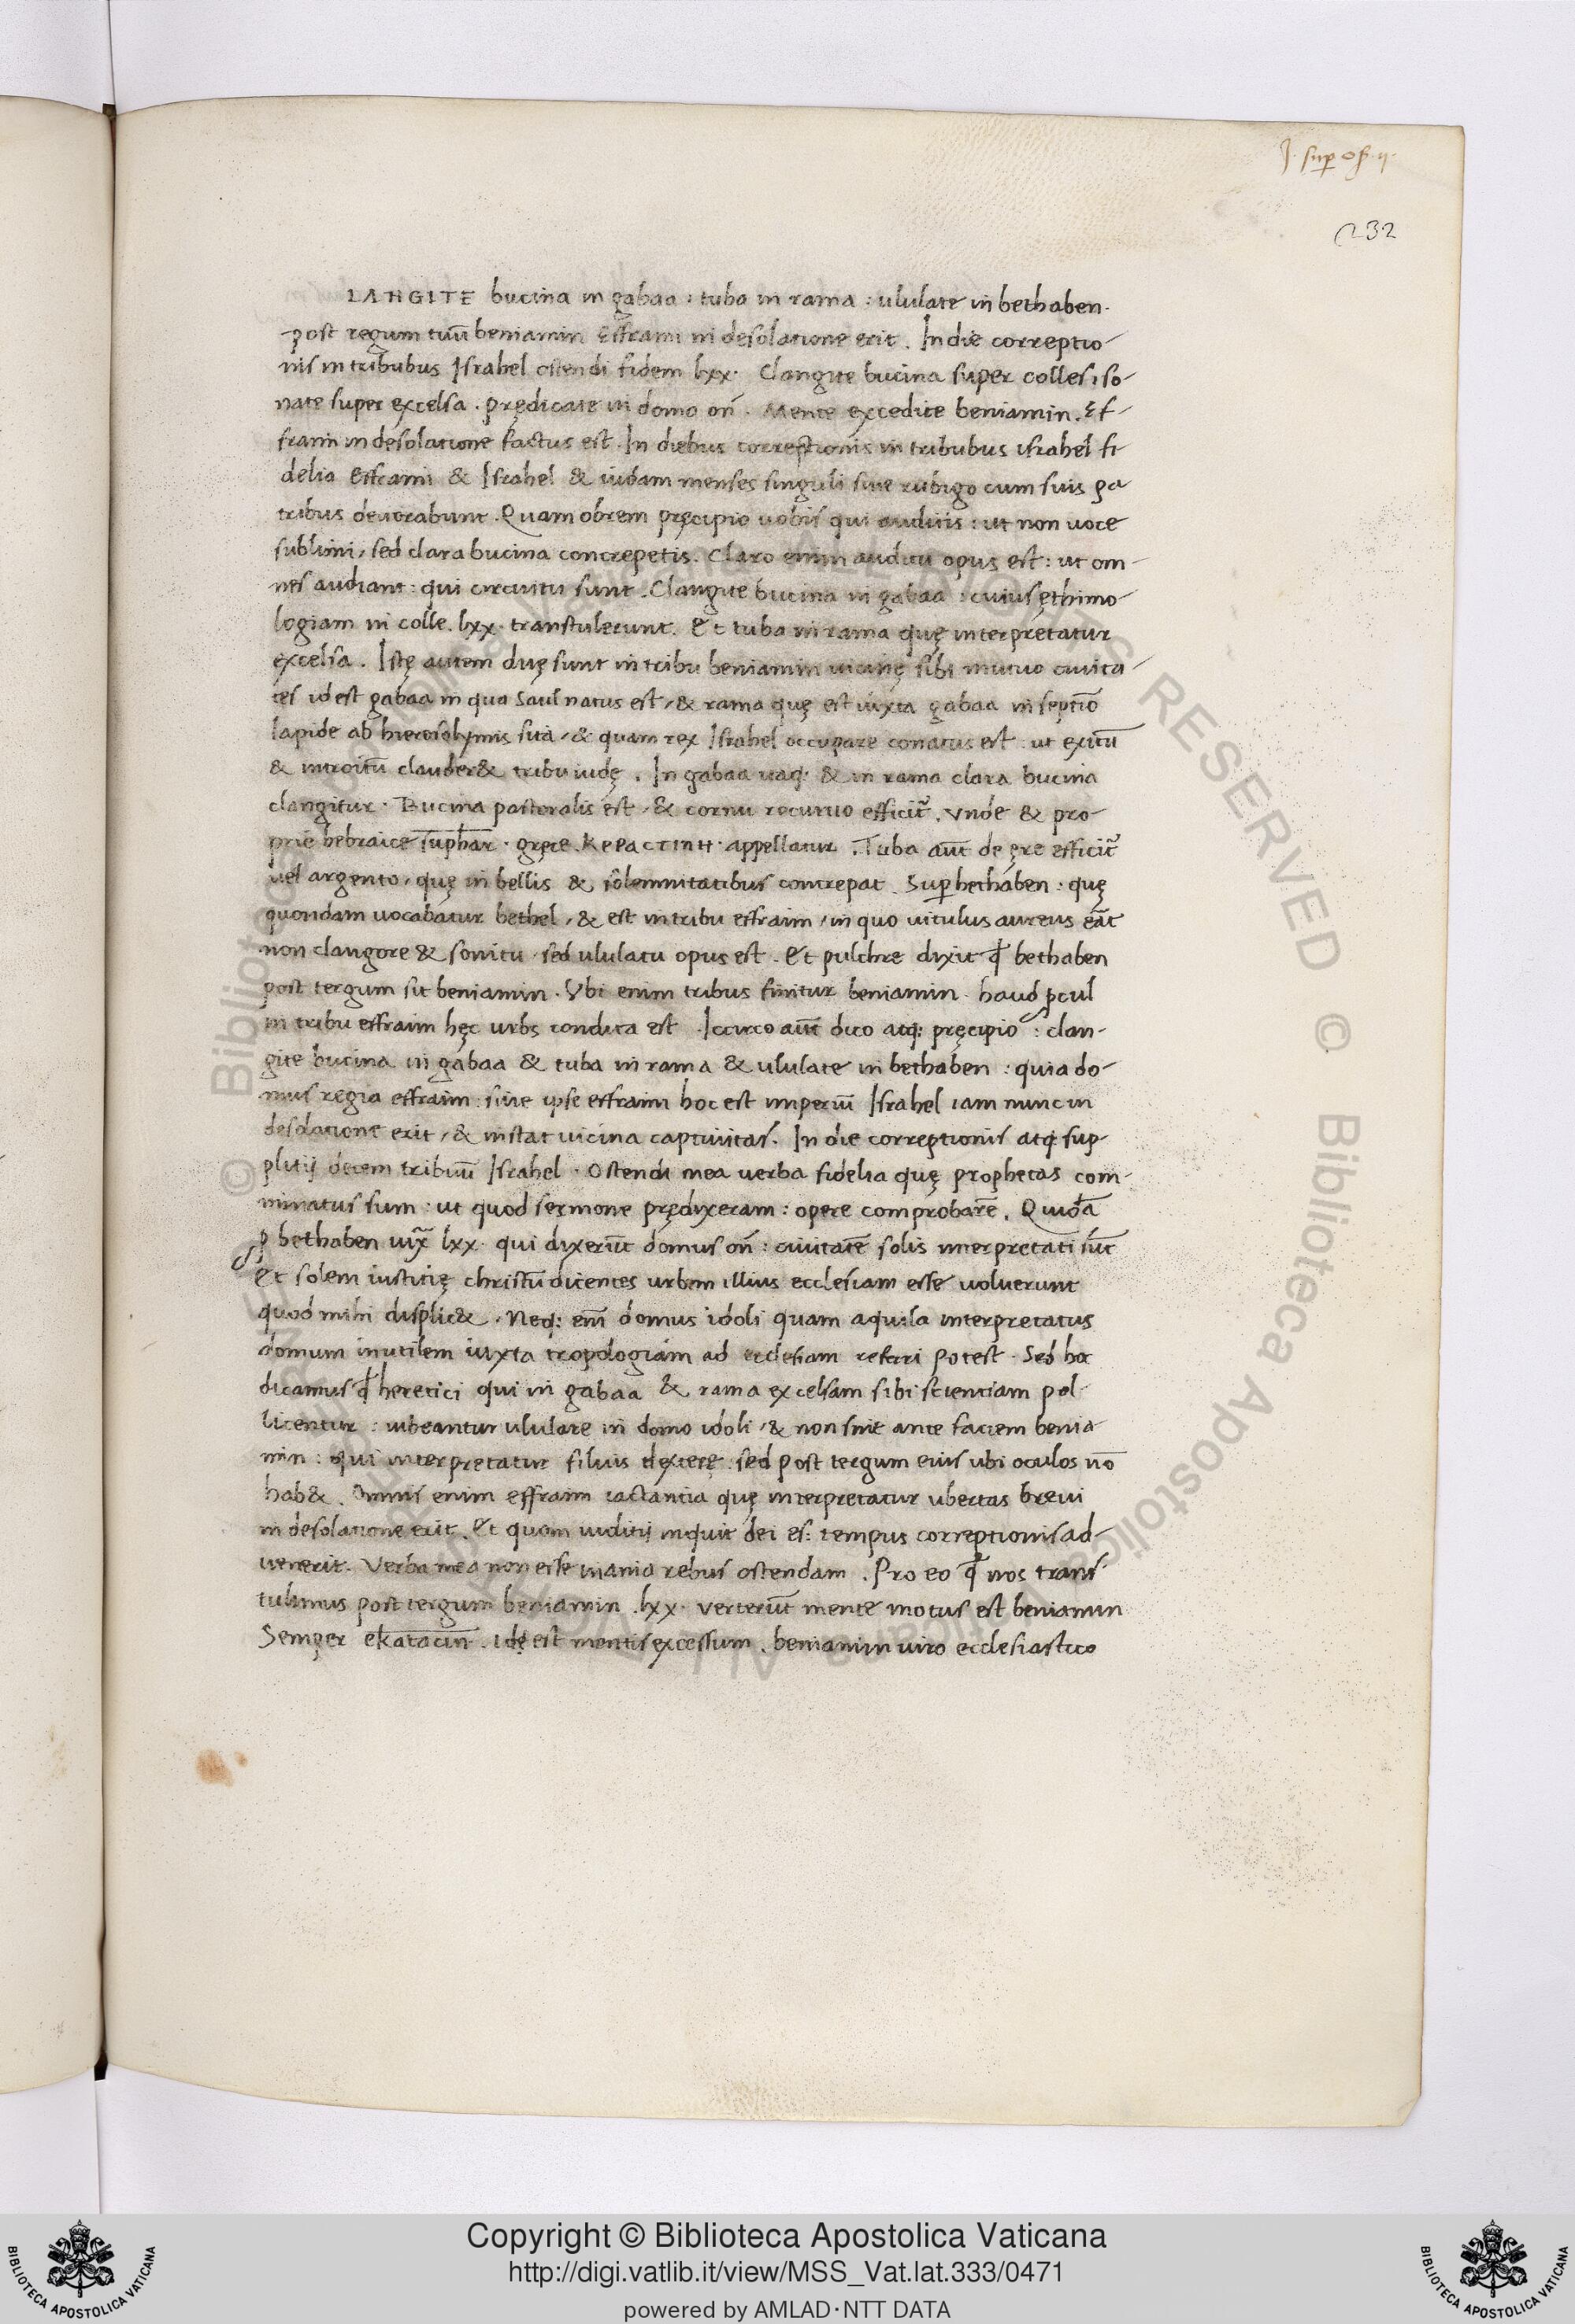 J. sup os. ii.
232
LANGITE bucina in gabaa : tuba in rama : ululate in bethaben.
post tegum tuū beniamin Effraim in desolatione erit . In die correptio-
nis in tribubus Israhel ostendi fidem lxx. Clangite bucina super colles, so-
nate super excelsa . prędicate in domo oñ . Mente excedite beniamin . Ef-
fraim in desolatione factus est . In diebus correptionis in tribubus israhel fi
delia Effraim & Israhel & iudam menses singuli siue rubigo cum suis pa
tribus deuorabunt . Quam obrem pręcipio uobis qui auditis : ut non uoce
sublimi, sed clara bucina concrepetis . Claro enim auditu opus est : ut om-
nes audiant : qui circuitu sunt . Clangite bucina in gabaa : cuius ethimo-
logiam in colle . lxx . transtulerunt . Et tuba in rama quę interpretatur
excelsa . Istę autem duę sunt in tribu beniamin uicinę sibi mutuo ciuita-
tes id est gabaa in qua Saul natus est, & rama quę est iuxta gabaa in septīo
lapide ab hierosolymis sita, & quam rex Israhel occupare conatus est ut exitū
& introitū clauder& tribu iudę . In gabaa itaq; & in rama clara bucina
clangitur . Bucina pastoralis est, & cornu recuruo efficit̃ . Vnde & pro-
prie hebraice suphar . gręce . ΚΕΡΑCΤΙΝΗ . appellatur . Tuba aūt de ęre efficit̃
uel argento, quę in bellis & solemnitatibus concrepat . Sup bethaben : quę
quondam uocabatur bethel, & est in tribu effraim, in quo uitulus aureus eāt
non clangore & sonitu sed ululatu opus est . Et pulchre dixit ꝙ bethaben
post tergum sit beniamin . Vbi enim tribus finitur beniamin . haud ꝓcul
in tribu effraim hęc urbs condita est . Iccirco aūt dico atq; pręcipio : clan-
gite bucina in gabaa & tuba in rama & ululate in bethaben : quia do-
mus regia effraim : siue ipse effraim hoc est imperiū Israhel iam nunc in
desolatione erit, & instat uicina captiuitas . In die correptionis atq; sup-
plitij decem tribuū Israhel . Ostendi mea uerba fidelia quę prophetas com-
minatus sum : ut quod sermone prędixeram : opere comprobarē . Quidā
ꝓ bethaben iux̃ lxx . qui dixerūt domus oñ : ciuitatē solis interpretati sūt
Et solem iustitię christū dicentes urbem illius ecclesiam esse uoluerunt
quod mihi displic& . Neq; enī domus idoli quam aquila interpretatus
domum inutilem iuxta tropologiam ad ecclesiam referri potest . Sed hoc
dicamus ꝙ heretici qui in gabaa & rama excelsam sibi scientiam pol-
licentur : iubeantur ululare in domo idoli, & non sint ante faciem benia-
min : qui interpretatur filius dexterę . sed post tergum eius ubi oculos nō
hab& . Omnis enim effraim iactantia quę interpretatur ubertas breui
in desolatione erit . Et quom iuditij inquit dei es : tempus correptionis ad-
uenerit . Verba mea non esse inania rebus ostendam . Pro eo ꝙ nos trans-
tulimus post tergum beniamin . lxx . verterūt mente motus est beniamin
Semper ekatacin . idest mentis excessum . beniamin uiro ecclesiastico
Copyright © Biblioteca Apostolica Vaticana
http://digi.vatlib.it/view/MSS_Vat.lat.333/0471
powered by AMLAD·NTT DATA